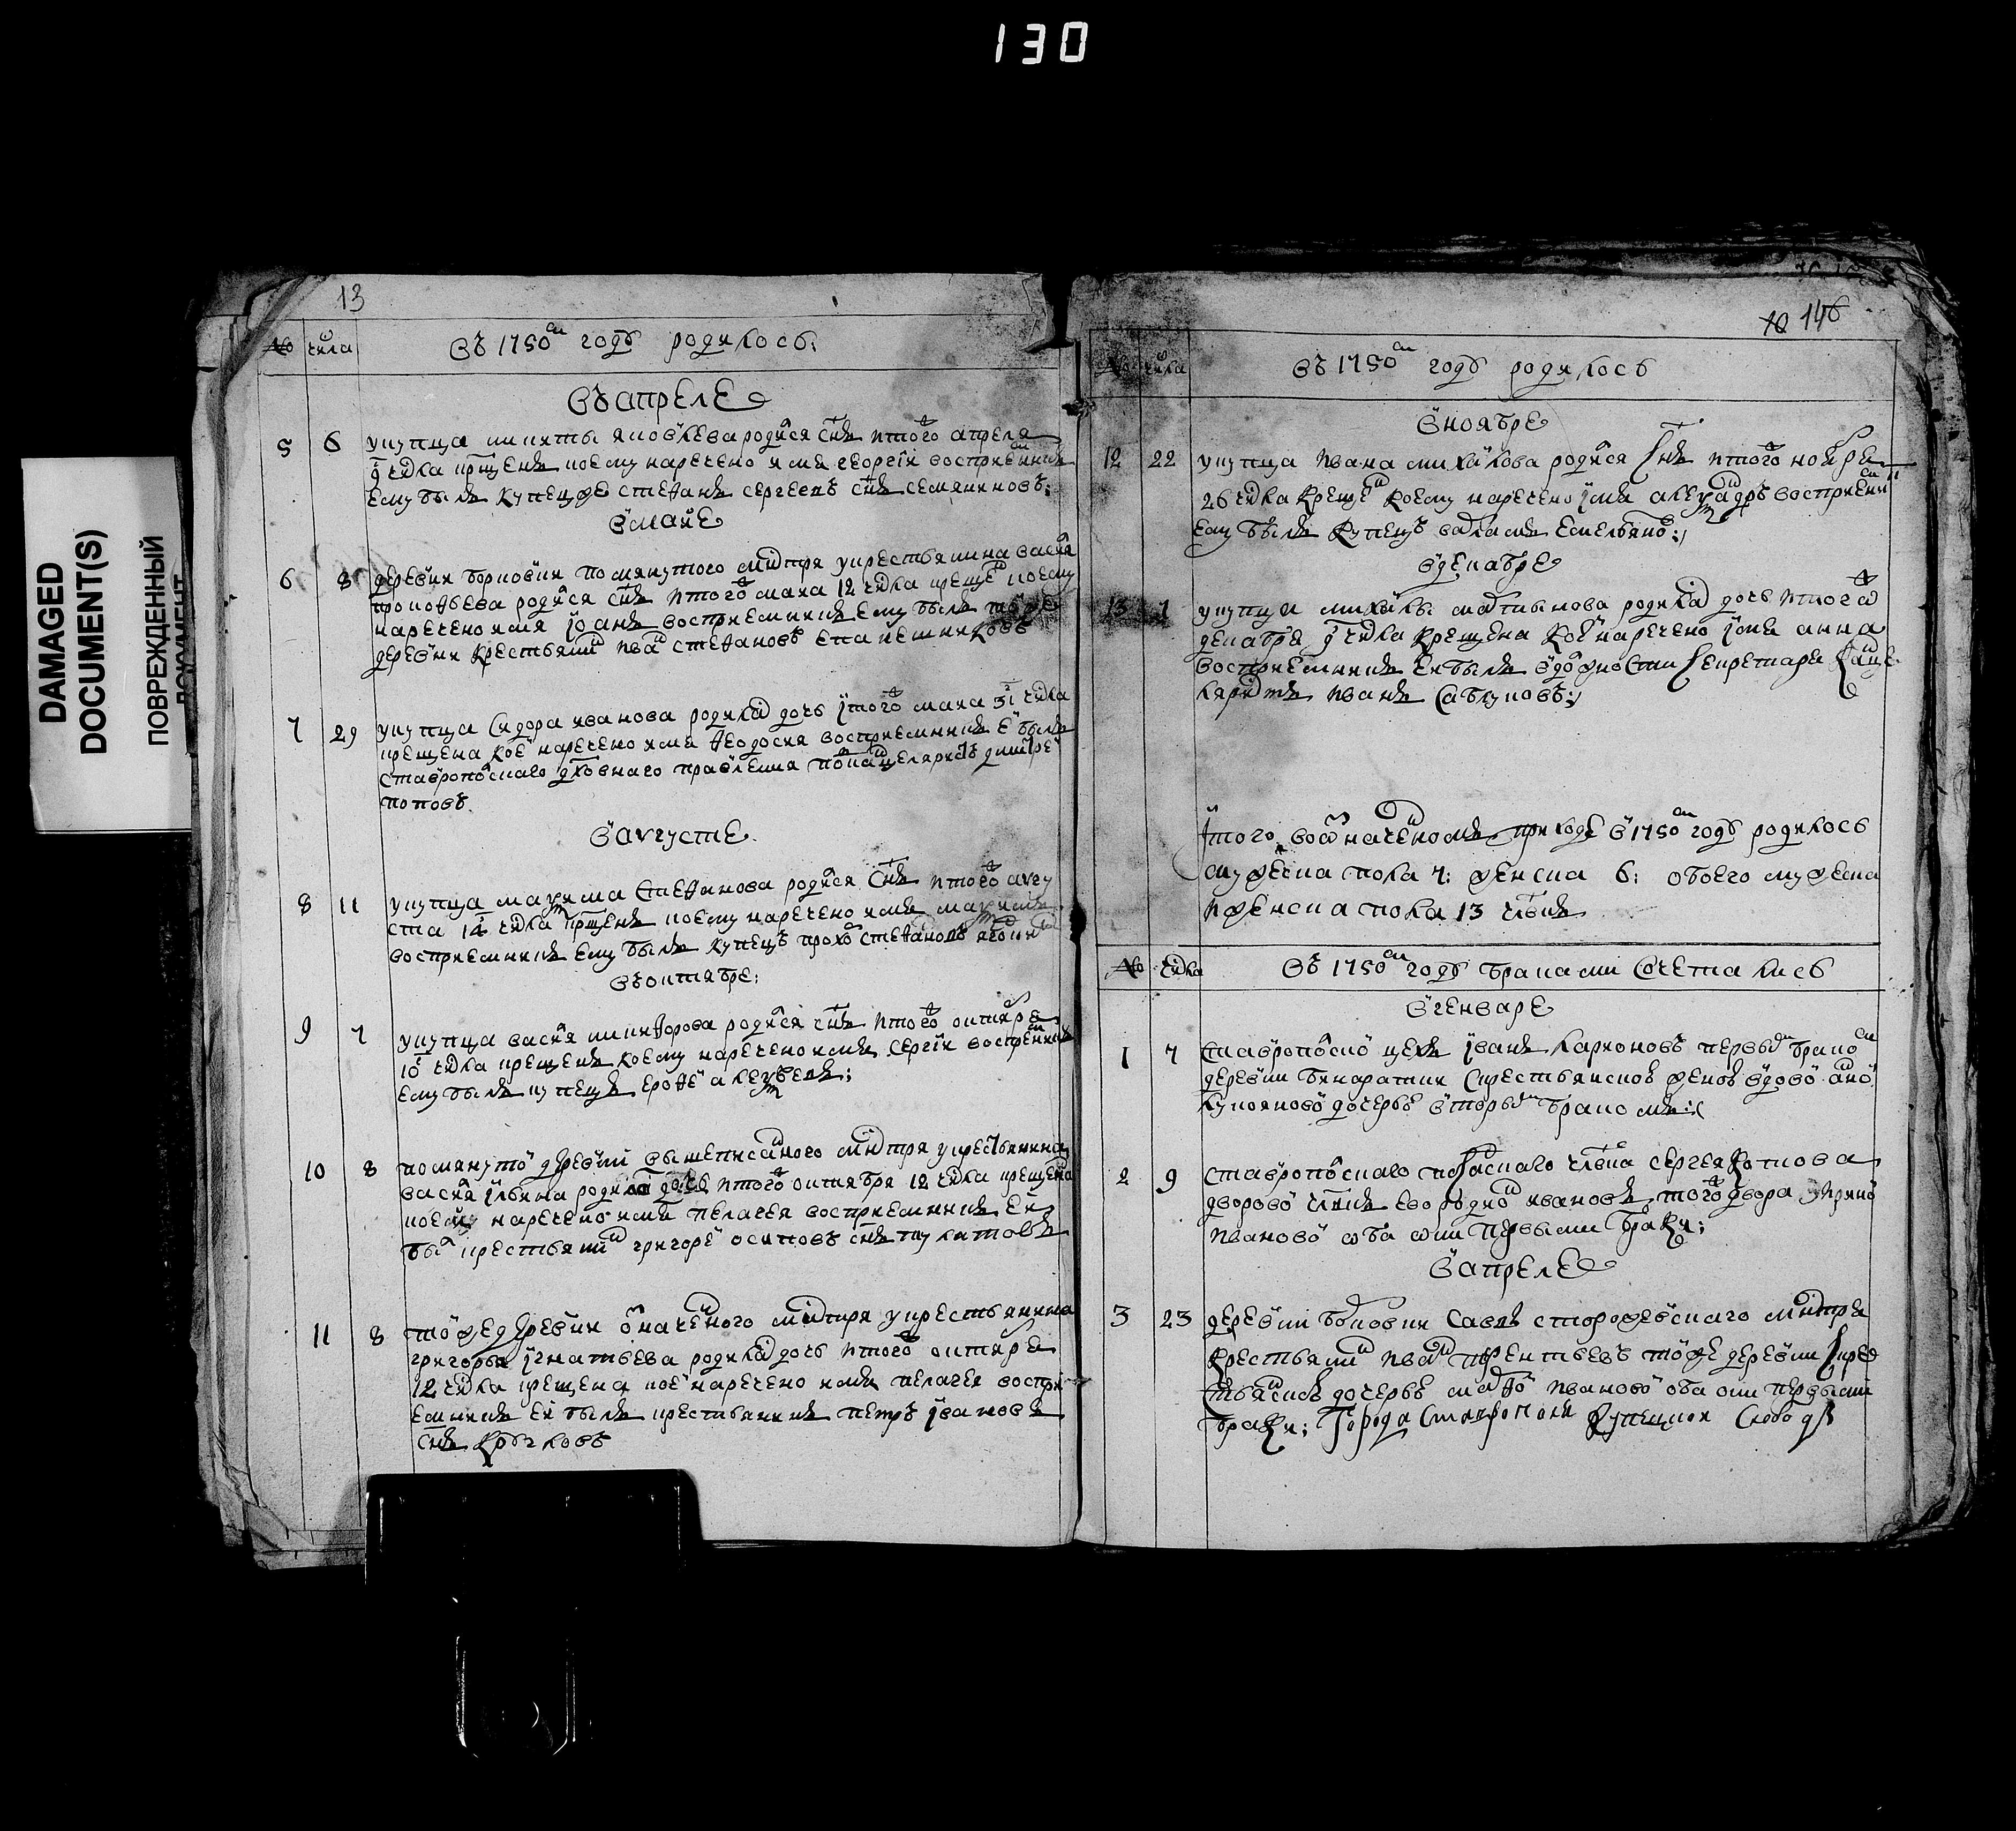 130
DAMAGED
DOCUMENT(S)
ПОВРЕЖДЕННЫЙ
ДОКУМЕНТ
13
№ числа Въ 1750м году родилось:
Въ апреле
5 6 у купца никиты яковлева родился снъ и того апреля
9 числа крщенъ коему наречено имя георгiи восприемникъ
ему былъ купецже стефанъ сергеевъ снъ
в маие
6 8 деревни борковки помянутого мнтря у крестьянина василья
прокофьева родился снъ и того маиа 12 числа крещен коему
наречено имя iоанъ восприемникъ ему былъ тоеже
деревни крестьянин иван стефановъ
7 29 у купца сидора иванова родилась дочь i того маиа 31 числа
крещена коей наречено имя феодосия восприемникъ ей былъ
ставропольскаго духовнаго правления подканцеляристъ дмитрей
поповъ
в августе
8 11 у купца максима стефанова родился снъ и того авгу
ста 14 числа крщенъ коему наречено имя максимъ
восприемникъ ему былъ купецъ прохор стефановъ
въ октябре:
9 7 у купца василя никифорова родился снъ и того октября
10 числа крещенъ коему наречено имя сергiи восприемникъ
ему былъ купецъ ерофей алексеевъ;
10 8 помянутой деревни вышеписанного мнтря у крестьянина
василя iльина родилась дочь и того октября 12 числа крещена
коей наречено имя пелагея восприемникъ ей
был крестьянин григорей осиповъ снъ
11 8 тойже деревни означенного мнтря у крестьянина
григорья iгнатьева родилась дочь и того октября
12 числа крещена коей наречено имя пелагея воспри
емникъ ей былъ крестьянинъ петръ iвановъ
снъ
10 146
№ числа Въ 1750м году родилось
в ноябре
12 22 у купца ивана михайлова родился снъ и того ноября
26 числа крещен коему наречено iмя александръ восприемник
ему былъ купецъ варламъ емельянов:
в декабре
13 7 у купца михайлы мартынова родилась дочь и того
декабря 9 числа крещена коей наречено iмя анна
восприемникъ ей былъ в должности секретаря канце
ляристъ иванъ
iтого во означенномъ приходе в 1750м году родилось
мужеска пола 7: женска 6: обоего мужеска
и женска пола 13 члвкъ
№ числа Въ 1750м году браками сочеталисъ
в генваре
1 7 ставропольской цехъ iванъ ларионовъ первым браком
деревни с крестьянскою женою вдовою анною
дочерью вторым бракомъ:
2 9 ставропольскаго члвка сергея котова
дворовой члвкъ ево родион ивановъ того двора
ивановой оба они первыми браки;
в апреле
3 23 деревни борковки савы сторожевскаго мнтря
крестьянин иван терентьевъ тойже деревни с кре
стьянскою дочерью марфою ивановою оба они первыми
браки; Города Ставрополя Купецкой Слободы